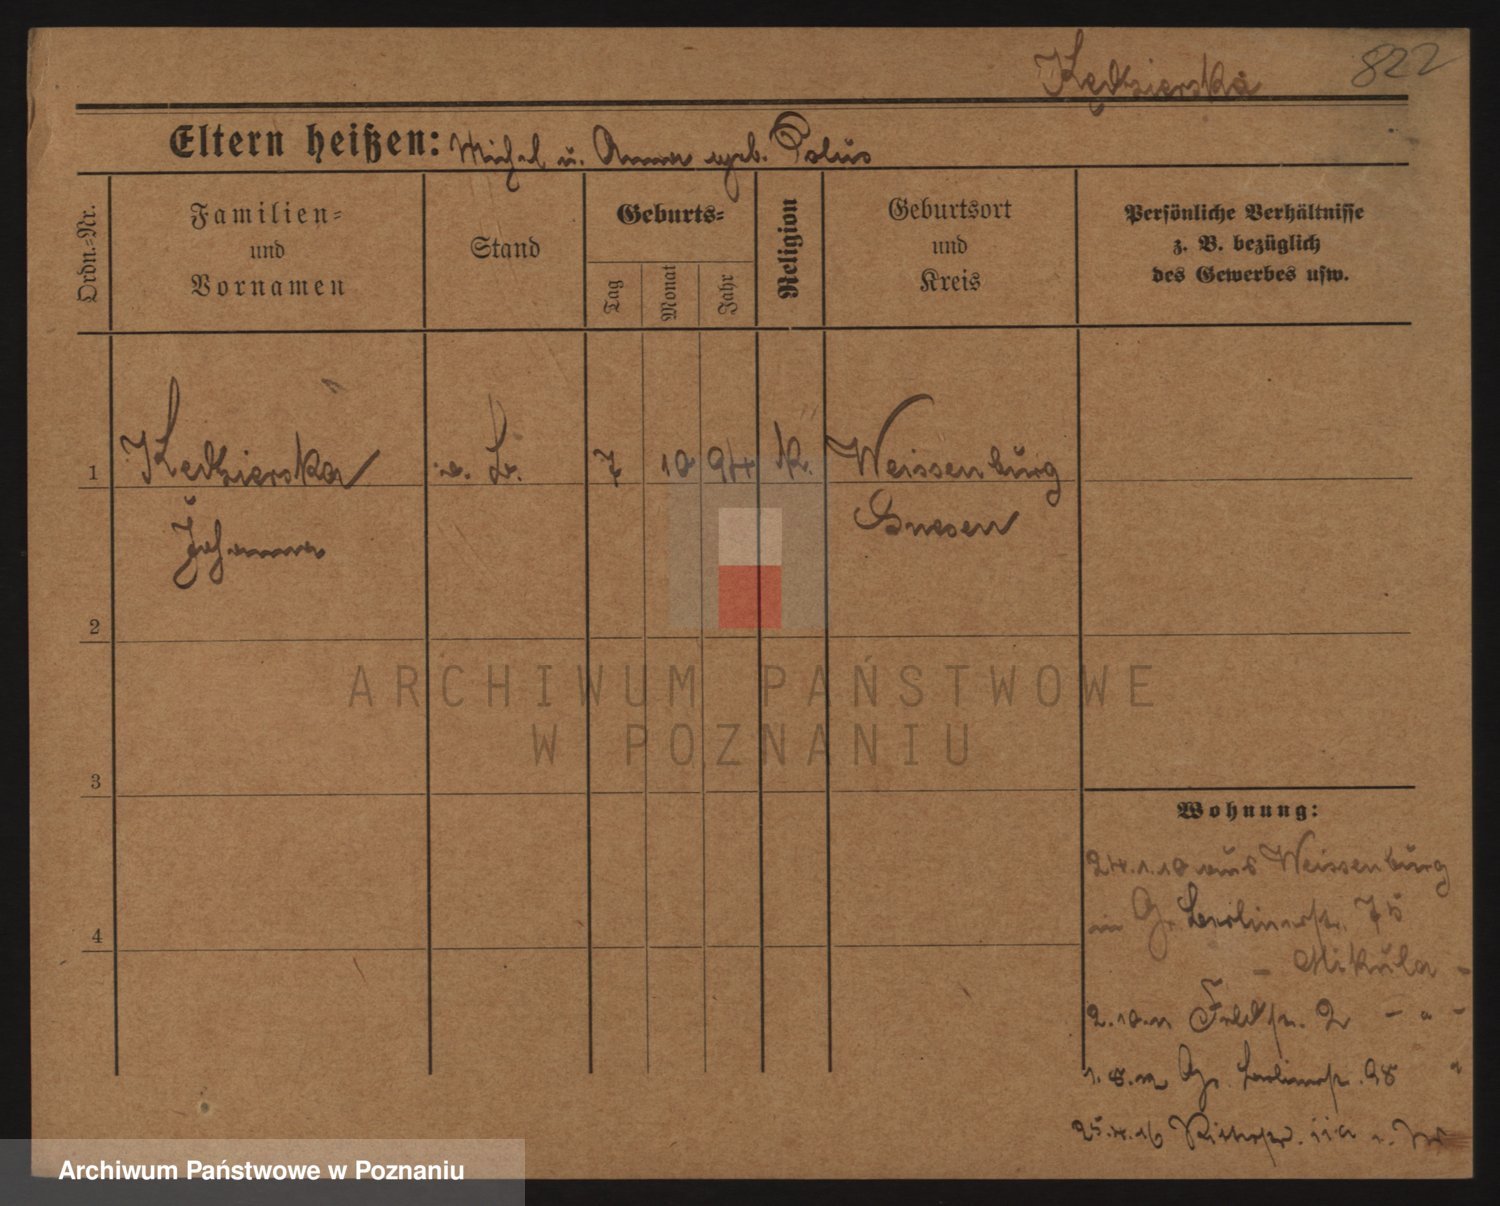 Kędzierska 822
Eltern heißen: Michel u. Anna geb. Polus
Ordn.-Nr.
Familien-
und
Vornamen
Stand
Geburts-
Tag
Monat
Jahr
Religion
Geburtsort
und
Kreis
Persönliche Verhältnisse
z. B. bezüglich
des Gewerbes usw.
1 Kedzierska L. 7 10 94 k. Weissenburg
Johanna Gnesen
2
3
4
Wohnung:
24.1.10 aus Weissenburg
in Gr. Berlinerstr. 75
- Mikula -
2.10.11 Feldstr. 2 - " -
1.8.12 Gr. Berlinerstr. 98 "
25.4.16 Ritterstr. 11a
ARCHIWUM PAŃSTWOWE
W POZNANIU
Archiwum Państwowe w Poznaniu